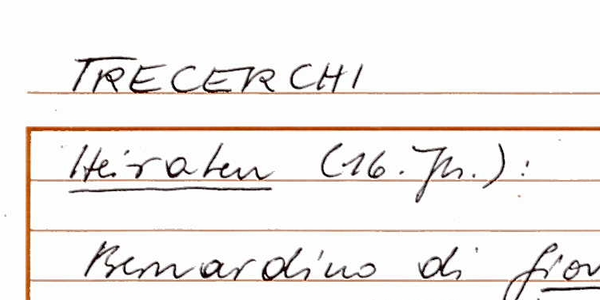 TRECERCHI
Heiraten (16. Jh.):
Bernardino di Giov